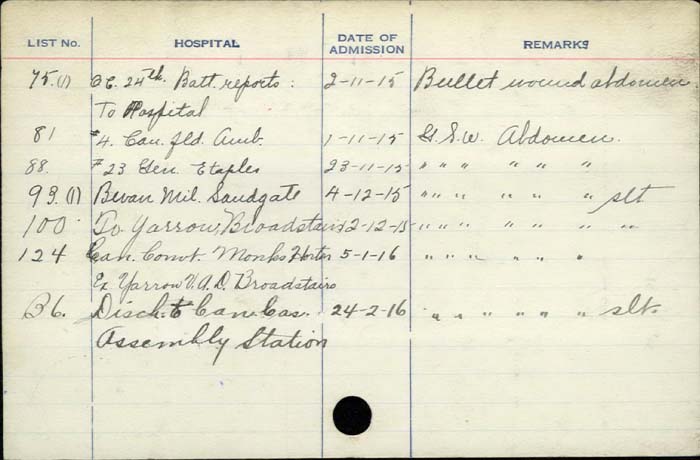 LIST No. HOSPITAL DATE OF ADMISSION REMARKS
75.(1) O.C. 24th. Batt. reports: 2-11-15 Bullet wound abdomen.
To Hospital
81 #4. Can. fld. Amb. 1-11-15 G.S.W. Abdomen.
88. #23 Gen. Etaples 23-11-15 " " " " " "
93.(1) Bevan Mil. Sandgate 4-12-15 " " " " " " slt
100 To Yarrow, Broadstairs 12-12-15 " " " " " " " "
124 Can. Convt. Monks Horton 5-1-16 " " " " " "
Ex Yarrow V.A.D. Broadstairs
B6. Disch. to Can. Cas. 24-2-16 " " " " " " slt.
Assembly Station